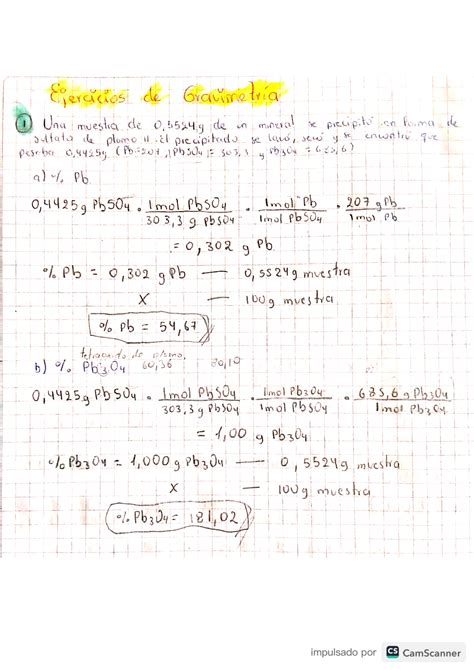 Ejercicios de Gravimetría
1 Una muestra de 0,5524g de un mineral se precipitó en forma de
sulfato de plomo II. El precipitado se lavó, secó y se encontró que
pesaba 0,4425g (Pb=207, PbSO4= 303,3 y Pb3O4 = 685,6)
a) % Pb
0,4425 g PbSO4 · 1mol PbSO4 / 303,3 g PbSO4 · 1mol Pb / 1mol PbSO4 · 207 gPb / 1mol Pb
= 0,302 g Pb
% Pb = 0,302 g Pb — 0,5524g muestra
X — 100g muestra
% Pb = 54,67
de plomo
b) % Pb3O4 60,36 80,10
0,4425g PbSO4 · 1mol PbSO4 / 303,3g PbSO4 · 1mol Pb3O4 / 1mol PbSO4 · 685,6 g Pb3O4 / 1mol Pb3O4
= 1,00 g Pb3O4
% Pb3O4 = 1,000g Pb3O4 — 0,5524g muestra
X — 100g muestra
% Pb3O4 = 181,02
impulsado por CS CamScanner